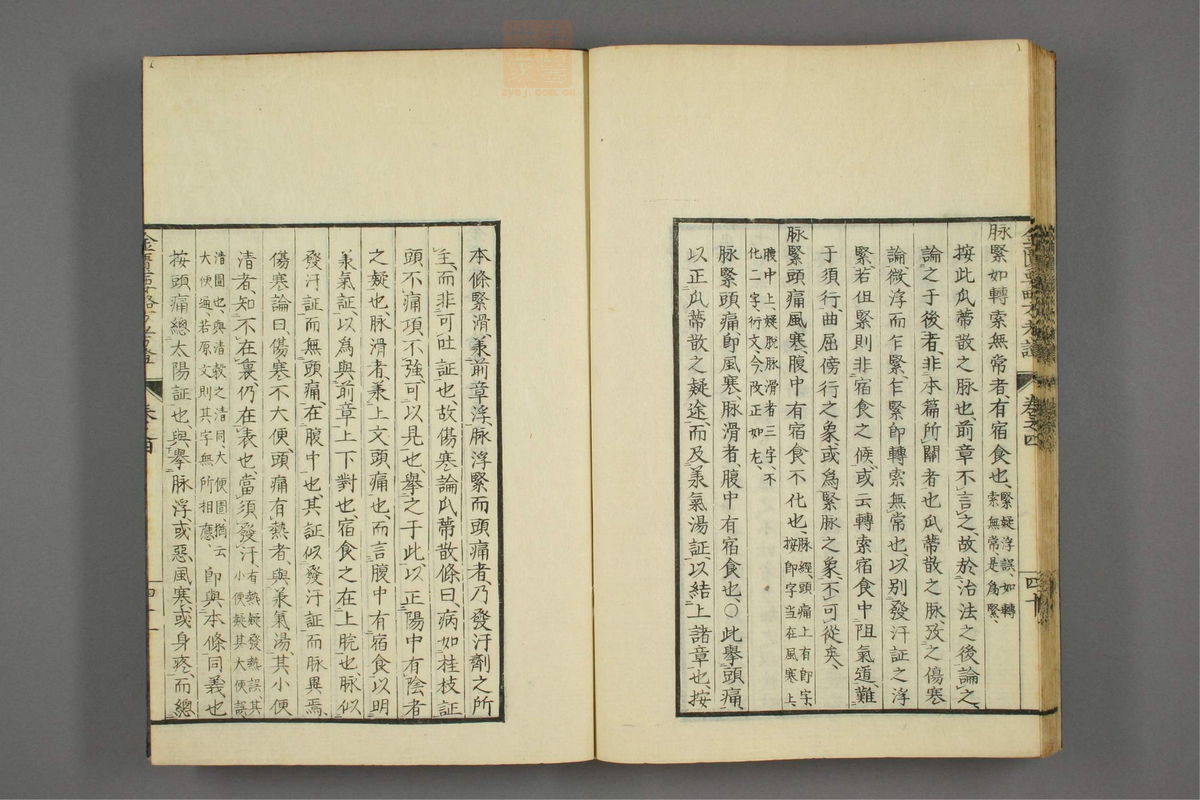 脉緊如轉索無常者、有宿食也、緊疑浮誤、如轉索無常是為緊、
按此瓜蒂散之脉也、前章不言之、故於治法之後論之、
論之于後者、非本篇所關者也、瓜蒂散之脉、攷之傷寒
論、微浮而乍緊、乍緊即轉索無常也、以別發汗証之浮
緊、若但緊則非宿食之候、或云轉索宿食中阻氣道、難
于須行、曲屈傍行之象、或為緊脉之象、不可從矣、
脉緊頭痛風寒、腹中有宿食不化也、脉經、頭痛上有即字、按即字当在風寒上、
腹中上、疑脫脉滑者三字、不化二字、衍文今改正如左、
脉緊頭痛、即風寒、脉滑者、腹中有宿食也、○此舉頭痛、
以正瓜蒂散之疑途、而及美氣湯証、以結上諸章也、按
本條緊滑、美前章浮、脉浮緊而頭痛者、乃發汗劑之所
主、而非可吐証也、故傷寒論瓜蒂散條曰、病如桂枝証
頭不痛項不強、可以見也、舉之于此、以正陽中有陰者
之疑也、脉滑者、美上文頭痛也、而言腹中有宿食、以明
美氣証、以為與前章上下對也、宿食之在上脘也、脉似
發汗証而無頭痛、在腹中也、其証似發汗証而脉異焉、
傷寒論曰、傷寒不大便、頭痛有熱者、與美氣湯、其小便
清者、知不在裏、仍在表也、當須發汗、有熱疑發熱誤、其小便疑其大便誤
清圊也、與清穀之清同、大便圊、猶云大便通、若原文則其字無所相應、即與本條同義也
按頭痛總太陽証也、與舉脉浮、或惡風寒、或身疼、而總